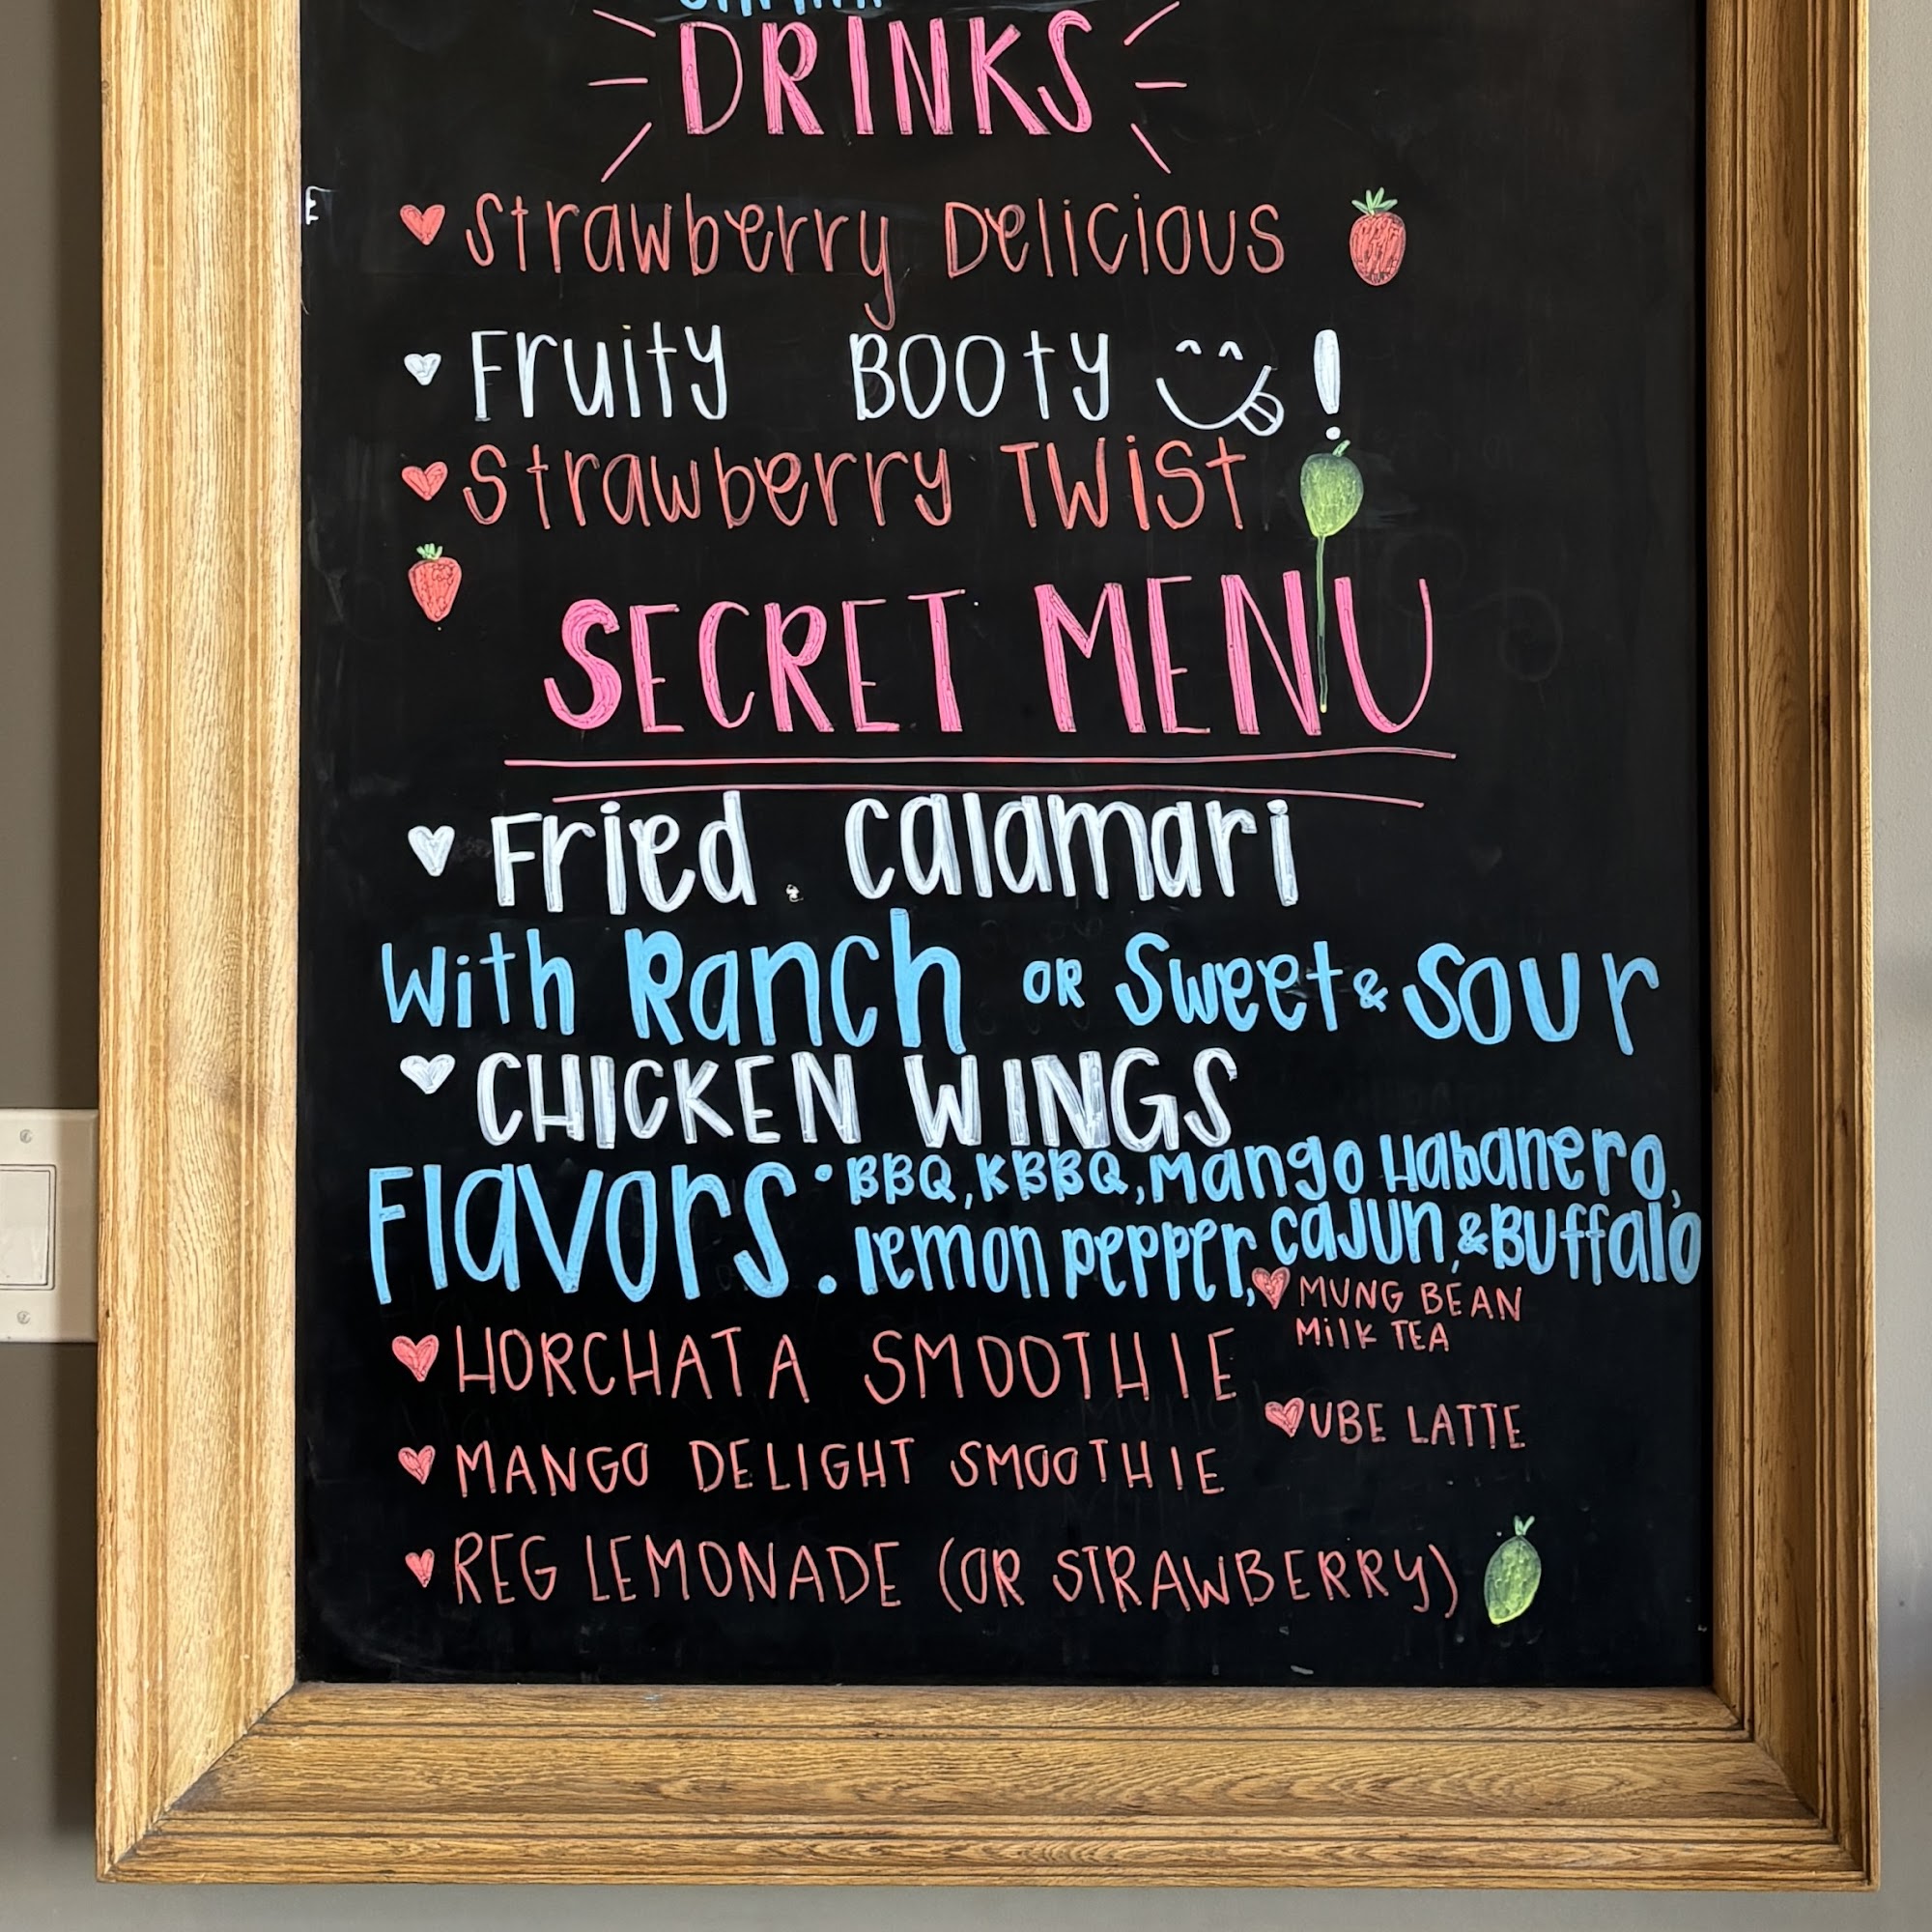 DRINKS
Strawberry Delicious
Fruity Booty !
Strawberry Twist
SECRET MENU
Fried Calamari
With Ranch OR Sweet & Sour
CHICKEN WINGS
Flavors: BBQ, KBBQ, Mango Habanero,
lemon pepper, cajun, & Buffalo
MUNG BEAN
MILK TEA
HORCHATA SMOOTHIE
UBE LATTE
MANGO DELIGHT SMOOTHIE
REG LEMONADE (OR STRAWBERRY)